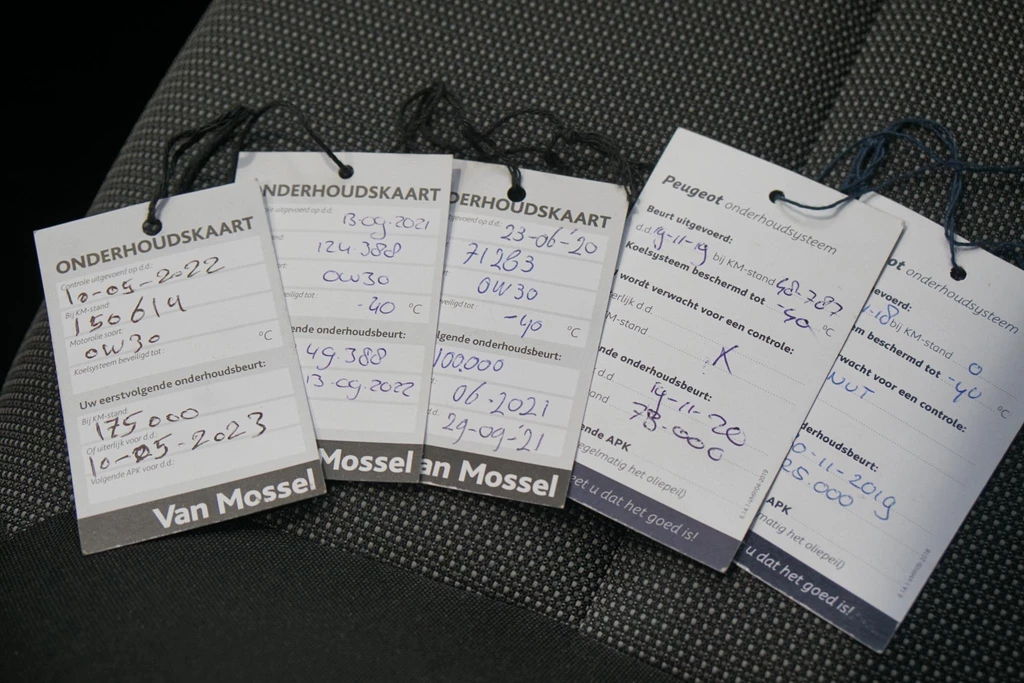 ONDERHOUDSKAART
Controle uitgevoerd op d.d.:
10-05-2022
Bij KM-stand:
150614
Motorolie soort:
0W30
Koelsysteem beveiligd tot: °C
Uw eerstvolgende onderhoudsbeurt:
Bij KM-stand
175000
Of uiterlijk voor d.d.:
10-05-2023
Volgende APK voor d.d.:
Van Mossel
NDERHOUDSKAART
uitgevoerd op d.d.:
13-09-2021
124.388
0W30
-40 °C
ende onderhoudsbeurt:
49.388
13-09-2022
Mossel
DERHOUDSKAART
gevoerd op d.d.:
23-06-'20
71263
0W30
eiligd tot: -40 °C
lgende onderhoudsbeurt:
100.000
06-2021
29-09-'21
an Mossel
Peugeot onderhoudsysteem
Beurt uitgevoerd:
d.d. 19-11-19 bij KM-stand 48.787
Koelsysteem beschermd tot -40 °C
wordt verwacht voor een controle:
erlijk d.d.
M-stand X
nde onderhoudsbeurt:
19-11-20
and 73.000
ende APK
egelmatig het oliepeil)
et u dat het goed is!
ot onderhoudsysteem
evoerd:
-18 bij KM-stand 0
m beschermd tot -40 °C
wacht voor een controle:
NUT
derhoudsbeurt:
0-11-2019
25.000
APK
matig het oliepeil)
u dat het goed is!